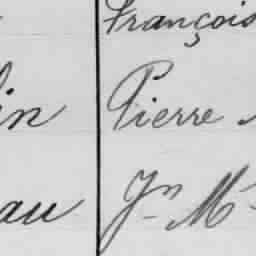 François
in Pierre
au Jn M